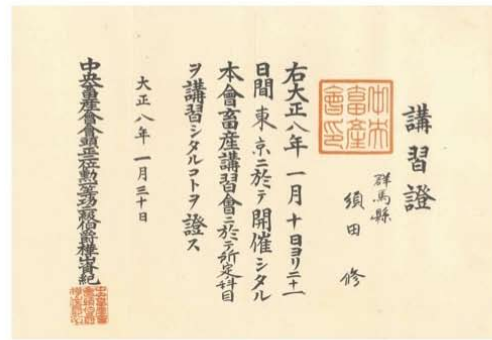 講習證
群馬縣
須田 修
中央
畜産
會印
右大正八年一月十日ヨリ二十一
日間東京ニ於テ開催シタル
本會畜産講習會ニ於テ所定科目
ヲ講習シタルコトヲ證ス
大正八年一月三十日
中央畜産會會頭正二位勲一等功二級伯爵樺山資紀